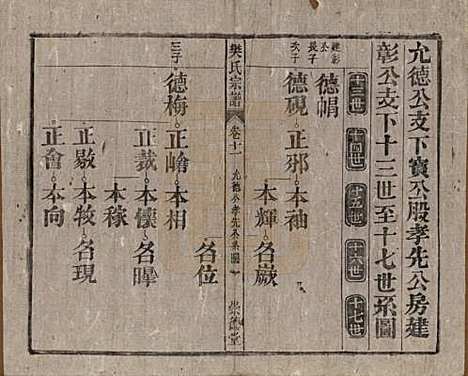 允德公支下寶公股孝先公房建
彰公支下十三世至十七世系圖
十三世 十四世 十五世 十六世 十七世
建彰公
長子 德帽
次子 德硯 正邪 本袖
本輝 名嶽
樊氏宗譜 卷十一 允德公孝先公系圖 崇德堂
名位
三子 德梅 正嶒 本相
正裁 本懷 名暉
本稼
正敭 本較 名現
正會 本向